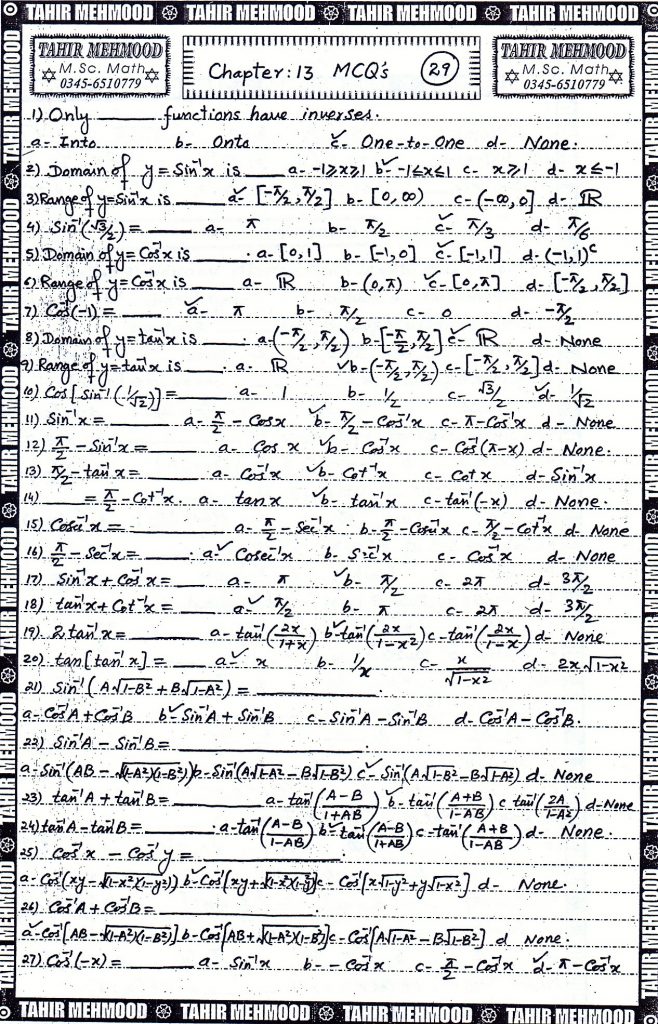 TAHIR MEHMOOD TAHIR MEHMOOD TAHIR MEHMOOD TAHIR MEHMOOD
TAHIR MEHMOOD
M.Sc. Math
0345-6510779
Chapter: 13 MCQ's 29
TAHIR MEHMOOD
M.Sc. Math
0345-6510779
1) Only ____ functions have inverses.
a- Into b- Onto ✓c- One-to-One d- None.
2) Domain of y = Sin⁻¹x is ____ a- -1≥x≥1 ✓b- -1≤x≤1 c- x≥1 d- x≤-1
3) Range of y=Sin⁻¹x is ____ ✓a- [-π/2, π/2] b- [0, ∞) c- (-∞, 0] d- ℝ
4) Sin⁻¹(√3/2) = ____ a- π b- π/2 ✓c- π/3 d- π/6
5) Domain of y=Cos⁻¹x is ____. a- [0,1] b- [-1,0] ✓c- [-1,1] d- (-1,1)ᶜ
6) Range of y=Cos⁻¹x is ____ a- ℝ b- (0,π) ✓c- [0,π] d- [-π/2, π/2]
7) Cos⁻¹(-1) = ____ ✓a- π b- π/2 c- 0 d- -π/2
8) Domain of y=tan⁻¹x is ____. a- (-π/2, π/2) b- [-π/2, π/2] ✓c- ℝ d- None
9) Range of y=tan⁻¹x is ____. a- ℝ ✓b- (-π/2, π/2) c- [-π/2, π/2] d- None
10) Cos[Sin⁻¹(1/√2)] = ____ a- 1 b- 1/2 c- √3/2 ✓d- 1/√2
11) Sin⁻¹x = ____ a- π/2 - Cosx ✓b- π/2 - Cos⁻¹x c- π-Cos⁻¹x d- None
12) π/2 - Sin⁻¹x = ____ a- Cos x ✓b- Cos⁻¹x c- Cos⁻¹(π-x) d- None.
13) π/2 - tan⁻¹x = ____ a- Cos⁻¹x ✓b- Cot⁻¹x c- Cot x d- Sin⁻¹x
14) ____ = π/2 - Cot⁻¹x. a- tan x ✓b- tan⁻¹x c- tan⁻¹(-x) d- None.
15) Cosec⁻¹x = ____ a- π/2 - Sec⁻¹x b- π/2 - Cosec⁻¹x c- π/2 - Cot⁻¹x d- None
16) π/2 - Sec⁻¹x = ____. a- ✓ Cosec⁻¹x b- Sec⁻¹x c- Cos⁻¹x d- None
17) Sin⁻¹x + Cos⁻¹x = ____ a- π ✓b- π/2 c- 2π d- 3π/2
18) tan⁻¹x + Cot⁻¹x = ____ a- ✓ π/2 b- π c- 2π d- 3π/2
19) 2 tan⁻¹x = ____ a- tan⁻¹(2x/1+x) ✓b- tan⁻¹(2x/1-x²) c- tan⁻¹(2x/1-x) d- None
20) tan[tan⁻¹x] = ____ a- ✓ x b- 1/x c- x/√1-x² d- 2x√1-x²
21) Sin⁻¹(A√1-B² + B√1-A²) = ____.
a- Cos⁻¹A + Cos⁻¹B ✓b- Sin⁻¹A + Sin⁻¹B c- Sin⁻¹A - Sin⁻¹B d- Cos⁻¹A - Cos⁻¹B.
22) Sin⁻¹A - Sin⁻¹B = ____.
a- Sin⁻¹(AB - √(1-A²)(1-B²)) b- Sin⁻¹(A√1-A² - B√1-B²) ✓c- Sin⁻¹(A√1-B² - B√1-A²) d- None
23) tan⁻¹A + tan⁻¹B = ____ a- tan⁻¹(A-B/1+AB) ✓b- tan⁻¹(A+B/1-AB) c tan⁻¹(2A/1-A²) d- None
24) tan⁻¹A - tan⁻¹B = ____. a- tan⁻¹(A-B/1-AB) ✓b- tan⁻¹(A-B/1+AB) c- tan⁻¹(A+B/1-AB) d- None.
25) Cos⁻¹x - Cos⁻¹y = ____.
a- Cos⁻¹(xy - √(1-x²)(1-y²)) ✓b- Cos⁻¹[xy + √(1-x²)(1-y²)] c- Cos⁻¹[x√1-y² + y√1-x²] d- None.
26) Cos⁻¹A + Cos⁻¹B = ____
✓a- Cos⁻¹[AB - √(1-A²)(1-B²)] b- Cos⁻¹[AB + √(1-A²)(1-B²)] c- Cos⁻¹[A√1-A² - B√1-B²] d None.
27) Cos⁻¹(-x) = ____ a- Sin⁻¹x b- - Cos⁻¹x c- π/2 - Cos⁻¹x ✓d- π - Cos⁻¹x
TAHIR MEHMOOD TAHIR MEHMOOD TAHIR MEHMOOD TAHIR MEHMOOD
TAHIR MEHMOOD TAHIR MEHMOOD TAHIR MEHMOOD TAHIR MEHMOOD TAHIR MEHMOOD TAHIR MEHMOOD
TAHIR MEHMOOD TAHIR MEHMOOD TAHIR MEHMOOD TAHIR MEHMOOD TAHIR MEHMOOD TAHIR MEHMOOD